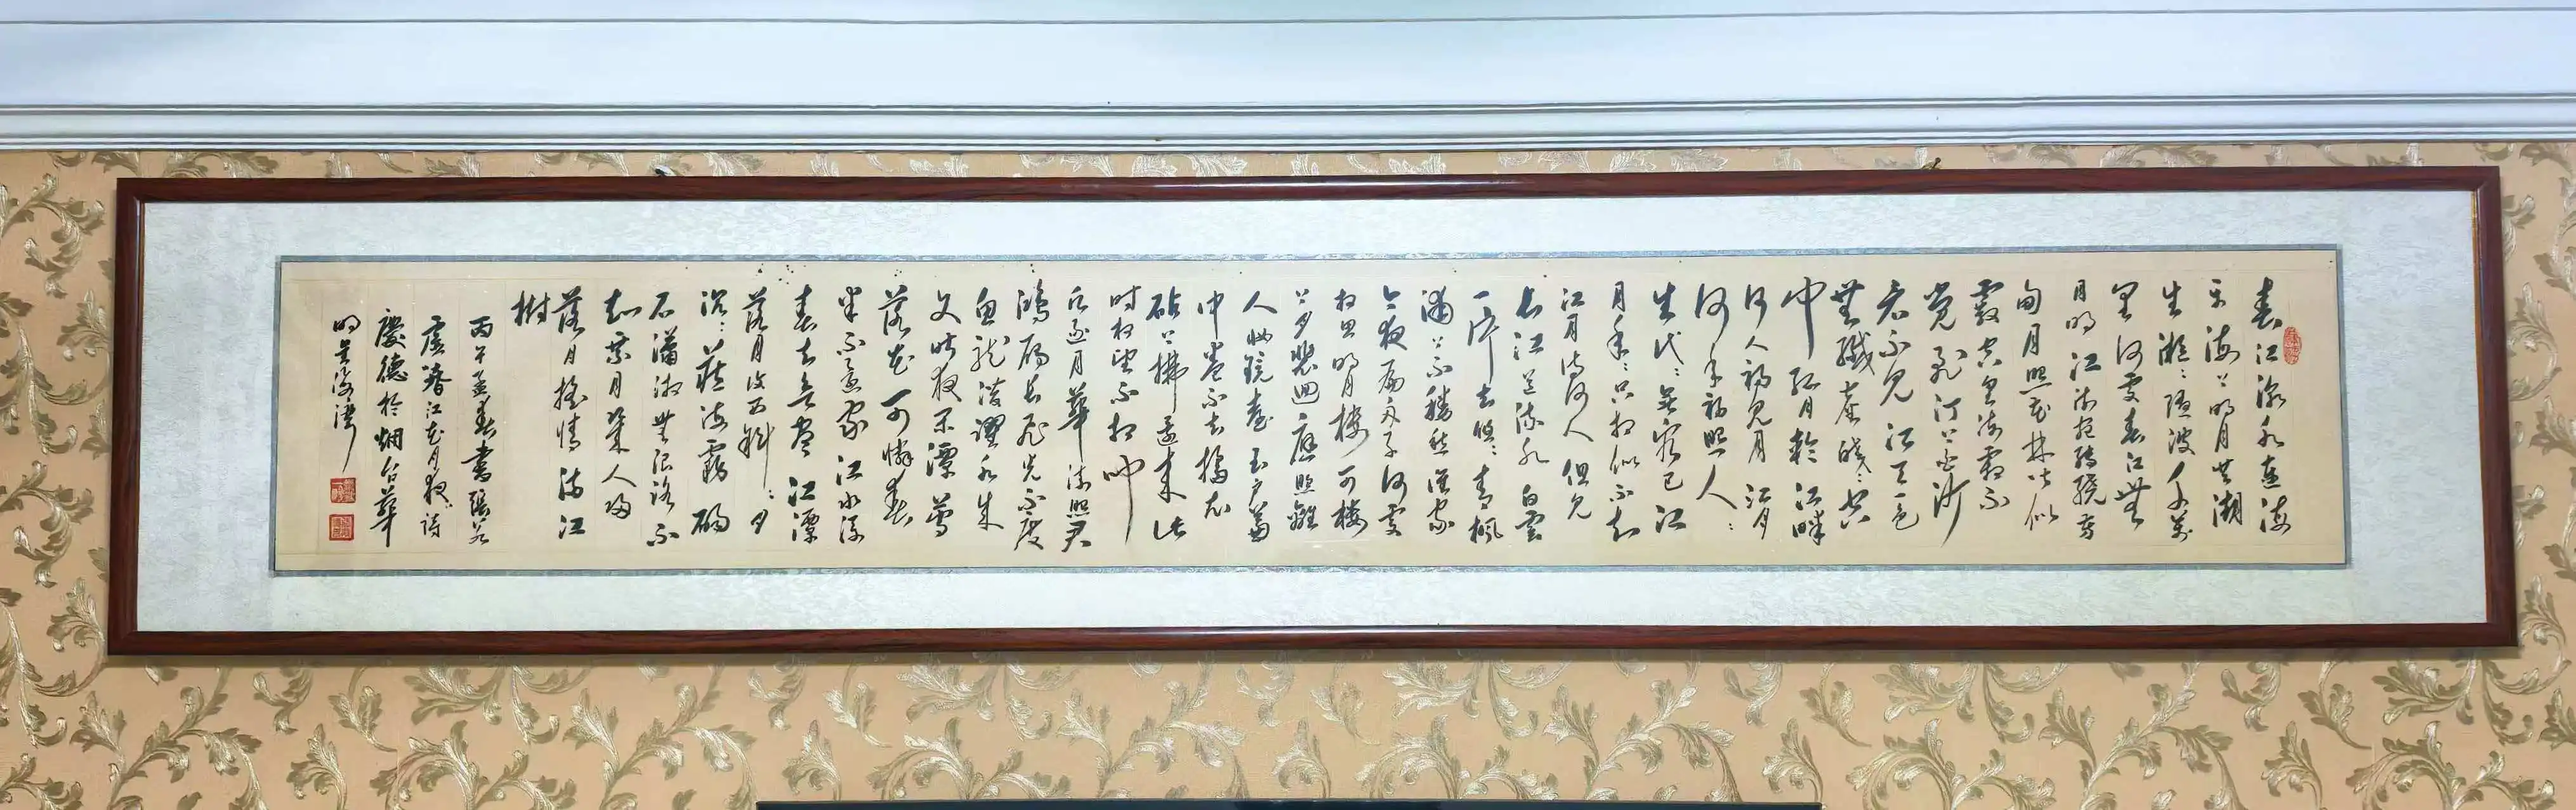 春江潮水連海
平海上明月共潮
生灩々隨波千萬
里何處春江無
月明江流宛轉繞芳
甸月照花林皆似
霰空里流霜不
覺飛汀上白沙
看不見江天一色
無纖塵皎々空
中孤月輪江畔
何人初見月江月
何年初照人々
生代々無窮已江
月年々只相似不知
江月待何人但見
長江送流水白雲
一片去悠々青楓
浦上不勝愁誰家
今夜扁舟子何處
相思明月樓可樓
上月裴回應照離
人妝鏡臺玉戶簾
中卷不去擣衣
砧上拂還來此
時相望不相聞
願逐月華流照君
鴻雁長飛光不度
魚龍潛躍水成
文昨夜閑潭夢
落花可憐春
半不還家江水流
春去欲盡江潭
落月復西斜々月
沉々藏海霧碣
石瀟湘無限路不
知乘月幾人歸
落月搖情滿江
樹
丙午孟春書張若
虛春江花月夜詩
慶德於烟台華
明星海灣